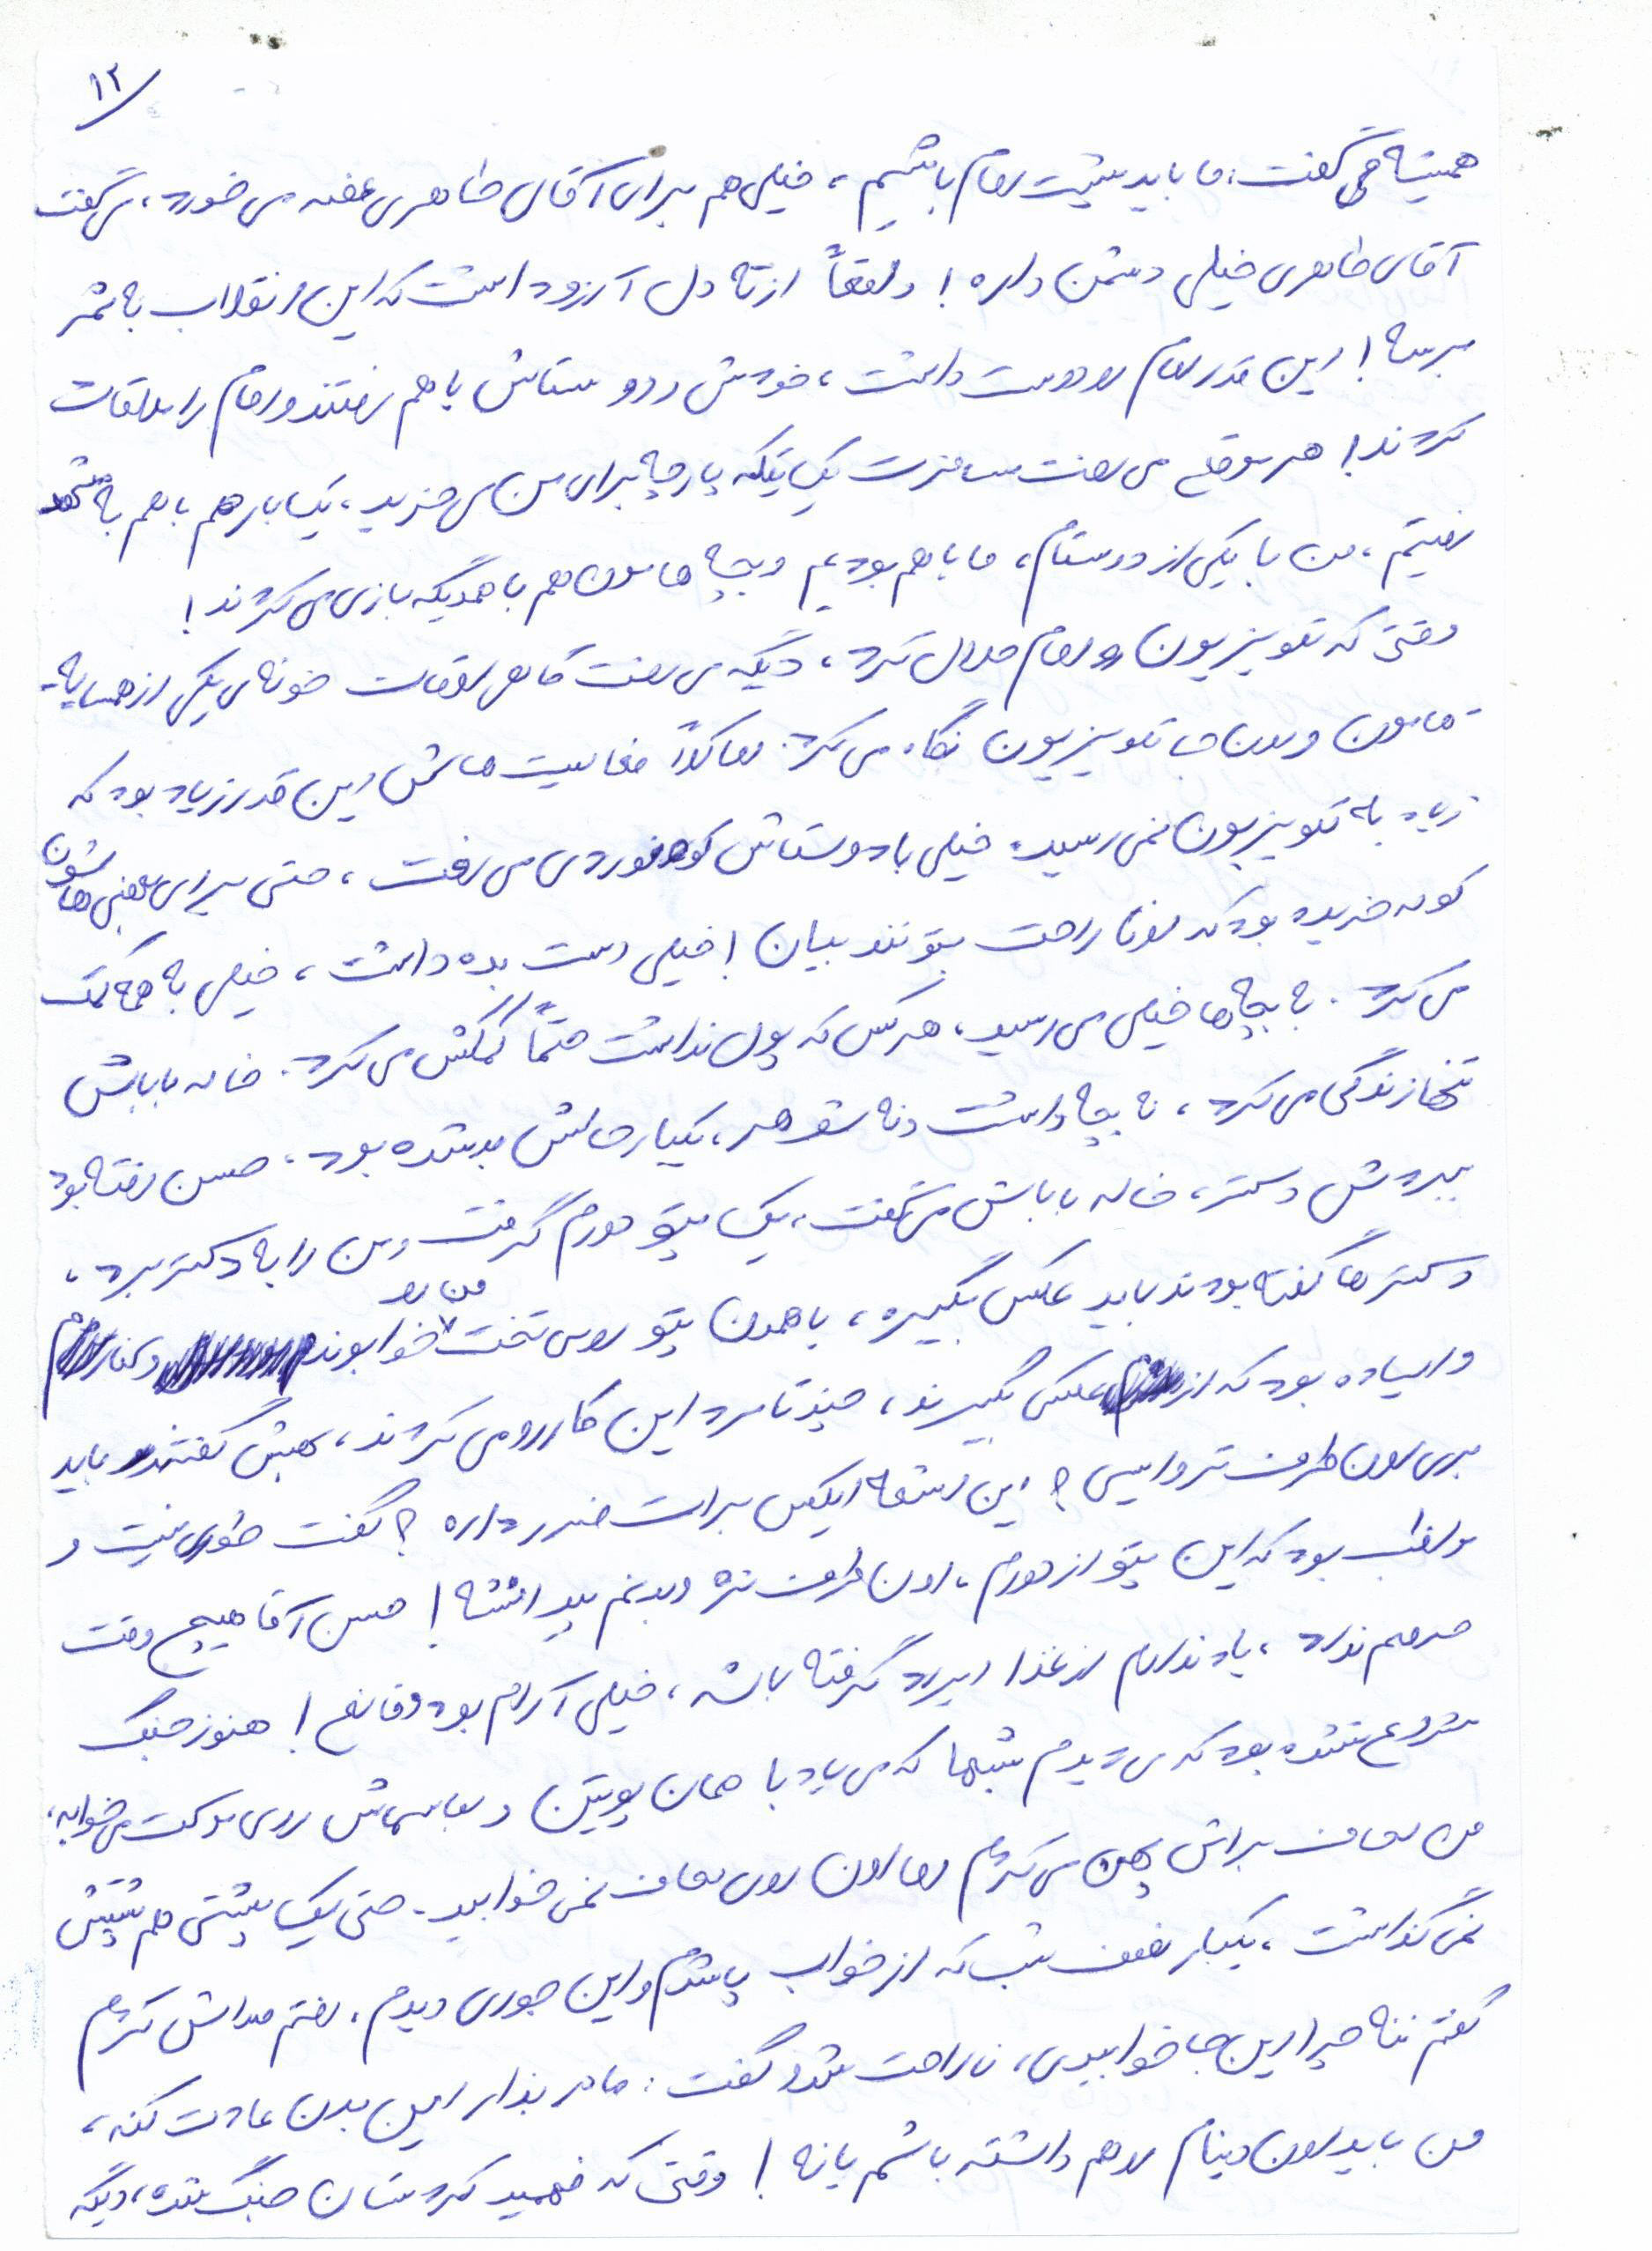 ۱۲/
همیشه می گفت: ما باید پشت امام باشیم، خیلی هم برای آقای طاهری غصه می خورد، می گفت
آقای طاهری خیلی دشمن داره! واقعاً از ته دل آرزو داشت که این انقلاب به ثمر
برسه! این قدر امام رو دوست داشت، خودش و دوستاش با هم رفتند و امام را ملاقات
کردند! هر موقع می رفت مسافرت یک تیکه پارچه برای من می خرید، یک بار هم با هم به مشهد
رفتیم، من با یکی از دوستام، ما با هم بودیم و بچه هامون هم با همدیگه بازی می کردند!
وقتی که تلویزیون رو امام حلال کرد، دیگه می رفت گاهی اوقات خونه ی یکی از همسایه
هامون و اون جا تلویزیون نگاه می کرد. اما کلاً فعالیت هاش این قدر زیاد بود که
زیاد به تلویزیون نمی رسید. خیلی با دوستاش کوهنوردی می رفت، حتی برای بعضی هاشون
کوله خریده بود که اونا راحت بتونند بیان! خیلی دست بده داشت، خیلی به همه کمک
می کرد. به بچه ها خیلی می رسید، هر کس که پول نداشت حتماً کمکش می کرد. خاله باباش
تنها زندگی می کرد، نه بچه داشت و نه شوهر، یکبار حالش بد شده بود. حسن رفته بود
ببردش دکتر، خاله باباش می گفت، یک پتو دورم گرفت و من را به دکتر برد،
دکترها گفته بودند باید عکس بگیره، با همون پتو روی تخت من رو خوابوند و کنارم
وایساده بود که از عکس بگیرند، چند تا مرد این کار رو می کردند، بهش گفتند باید
بری اون طرف تر وایسی؟ این اشعه ایکس برات ضرر داره؟ گفت طوری نیست و
مواظب بود که این پتو از دورم، اون طرف نره و بدنم پیدا نشه! حسن آقا هیچ وقت
حرفم نداد، یاد ندارم از غذا ایراد گرفته باشه، خیلی آرام بود و قانع! هنوز جنگ
شروع نشده بود که می دیدم شبها که می یاد با همان پوتین و لباسهاش روی موکت می خوابه،
من لحاف براش پهن می کردم اما اون روی لحاف نمی خوابید. حتی یک پشتی هم پشتش
نمی گذاشت، یکبار نصف شب که از خواب پاشدم و این جوری دیدم، رفتم صداش کردم
گفتم ننه چرا این جا خوابیدی، ناراحت شد و گفت: مادر بذار این بدن عادت کنه،
من باید اون دینام رو هم داشته باشم یا نه! وقتی که فهمید کردستان جنگ شده، دیگه